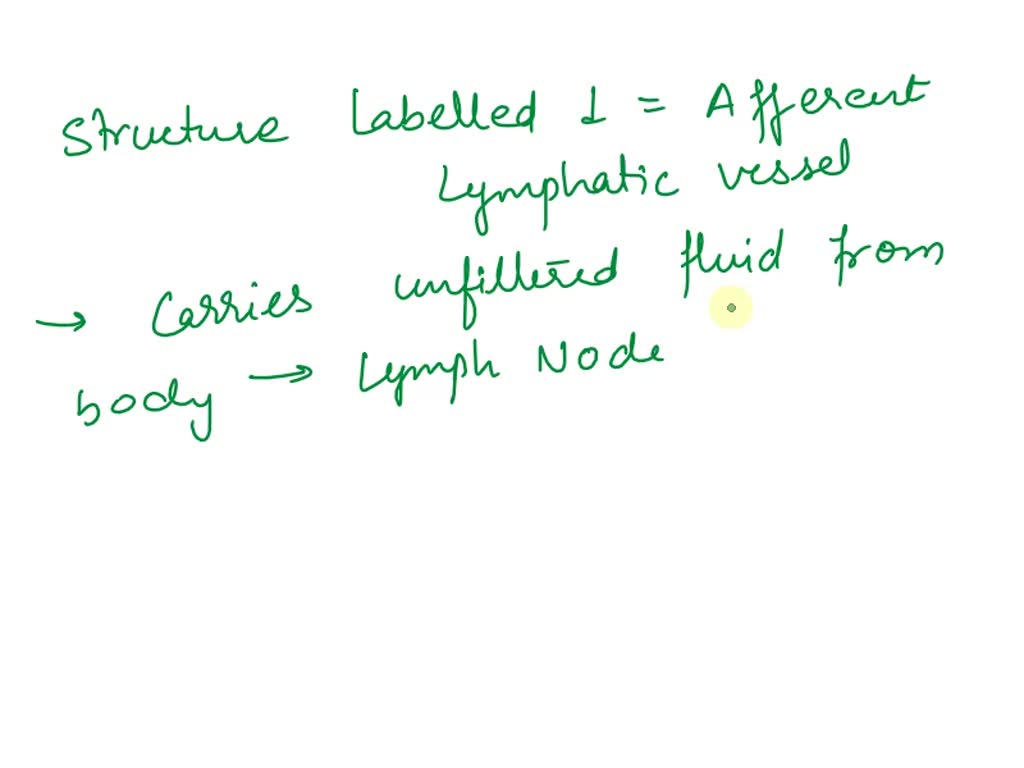 Structure Labelled 1 = Afferent
Lymphatic vessel
→ Carries unfiltered fluid from
body → Lymph Node